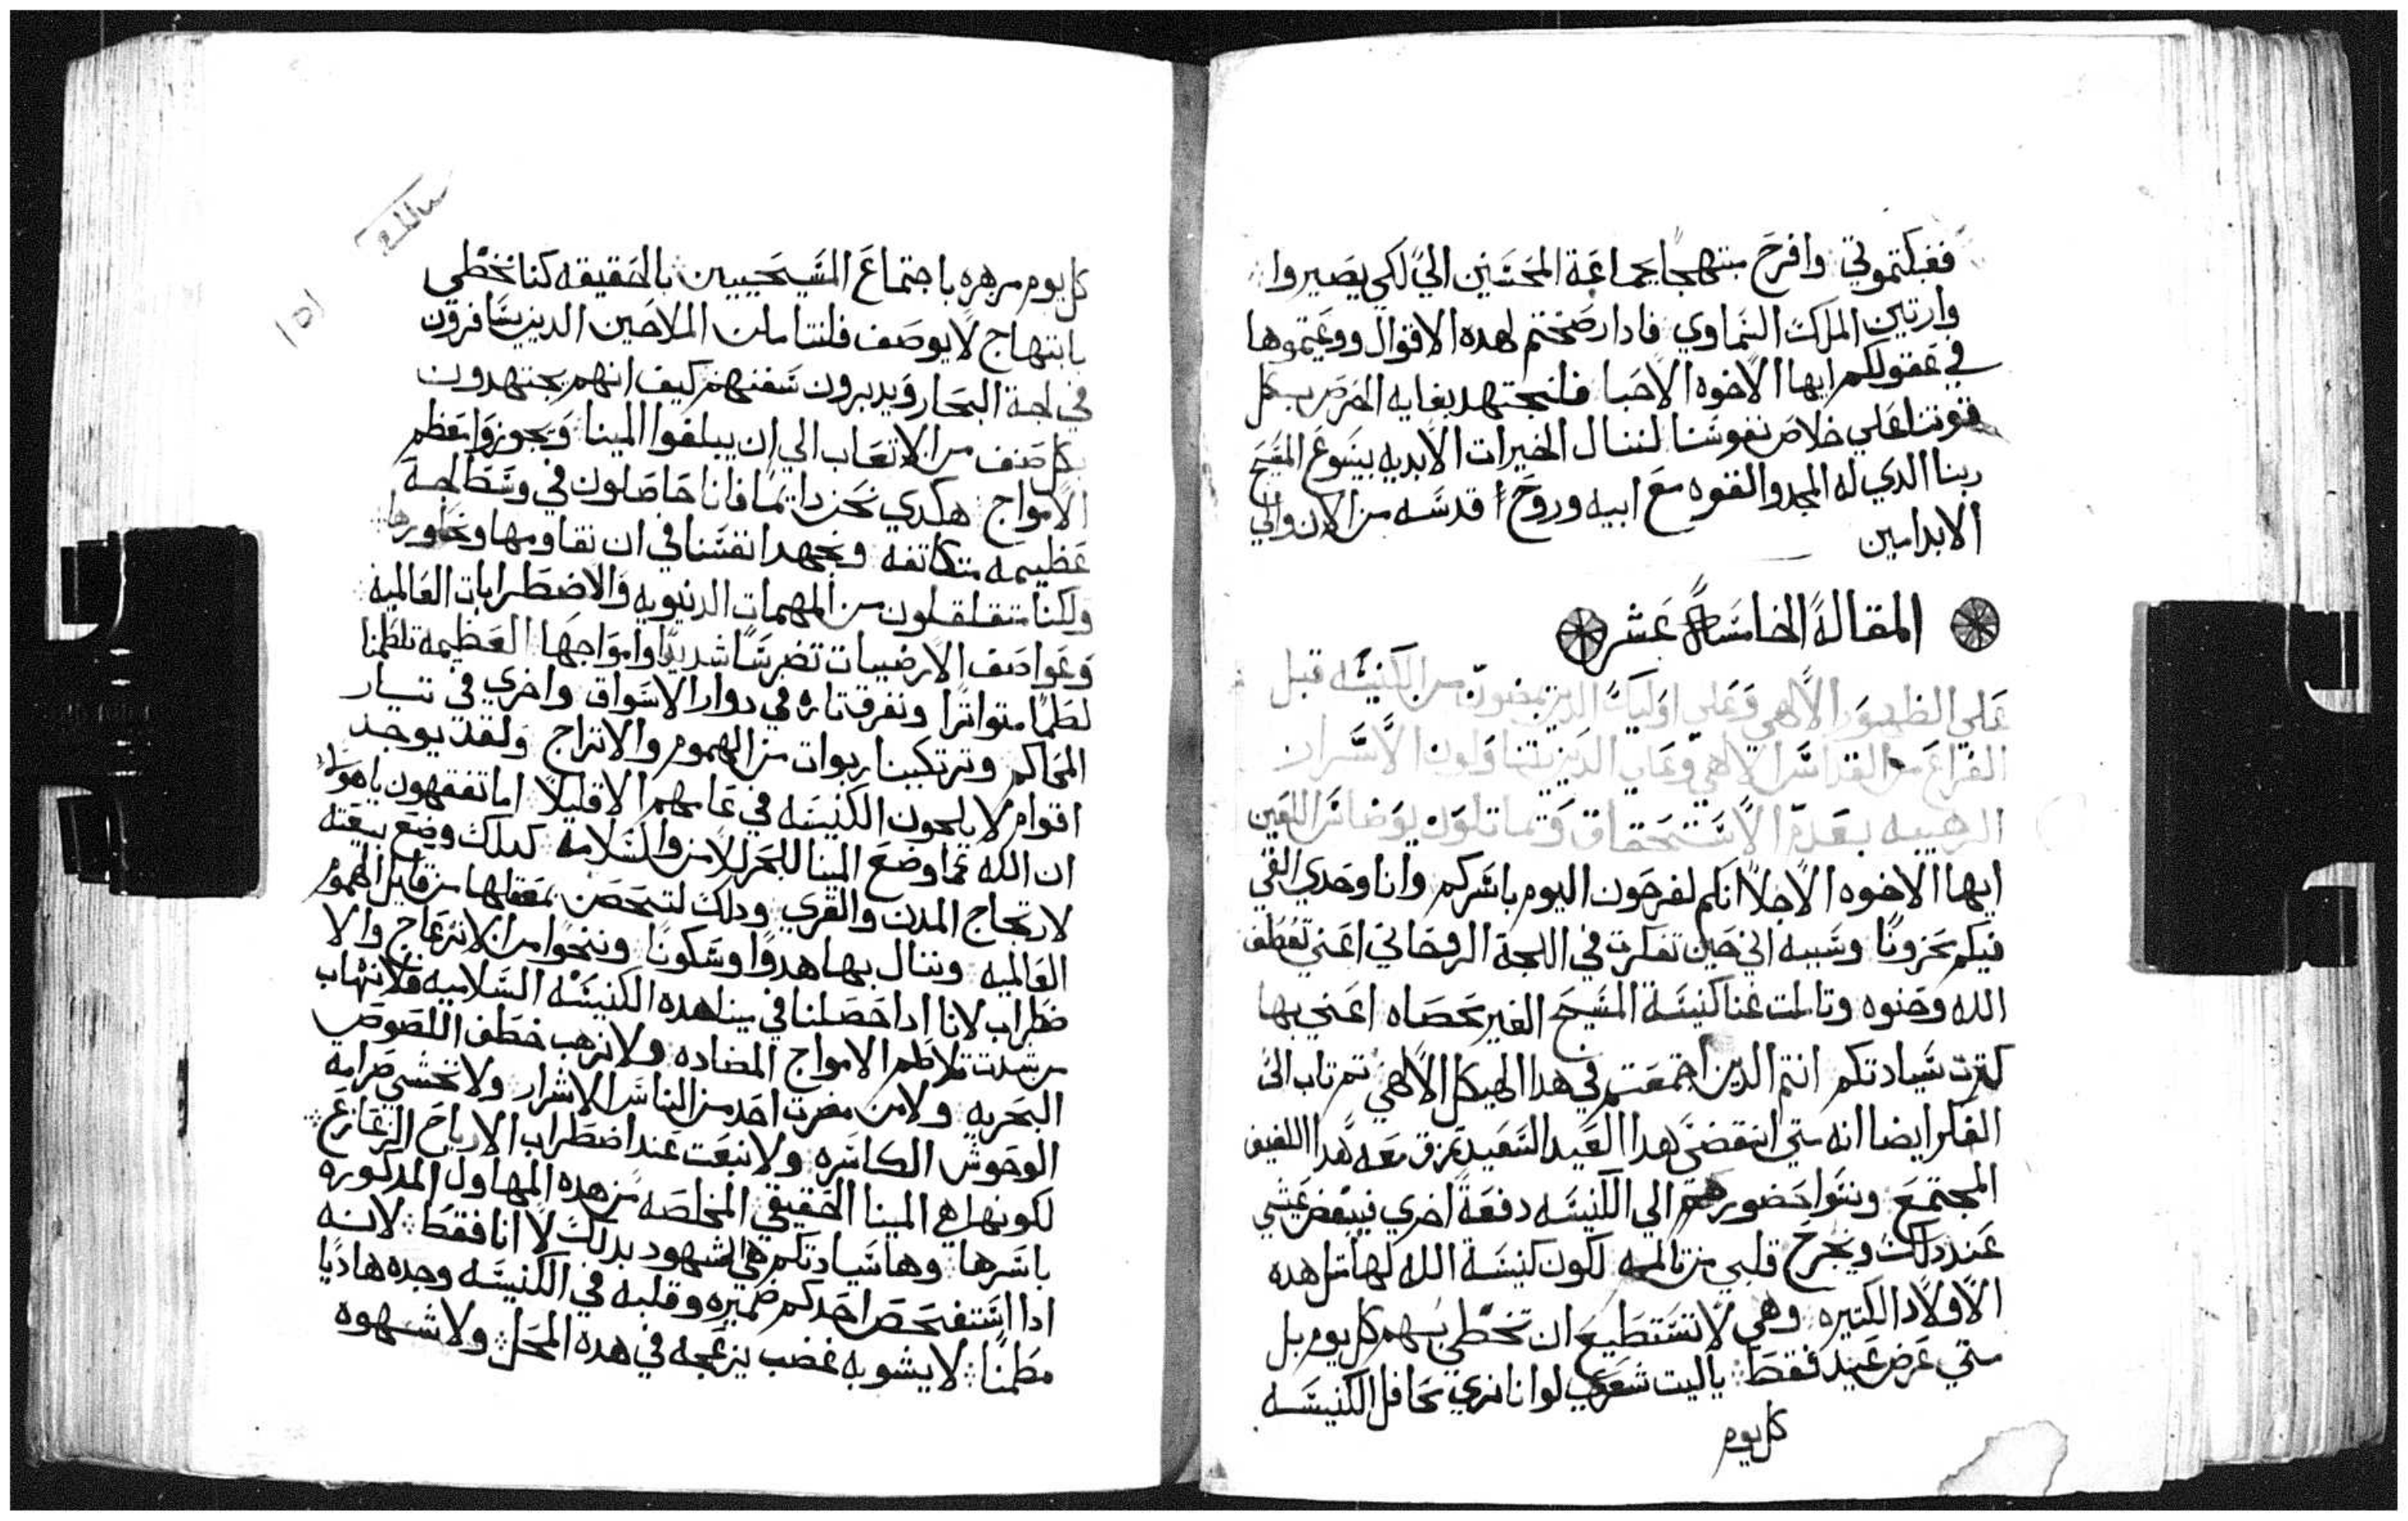 ففبكتموني وافرح مبتهجا بجماعة المحسنين الي لكي يصيروا
وارتين الملكت السماوي فادا رضختم لهده الاقوال ووعيتموها
في عقولكم ايها الاخوه الاحبا فلنجتهد بغايه الحرص بكل
قوتنا علي خلاص نفوسنا لننال الخيرات الابديه بيسوع المسيح
ربنا الدي له المجد والقوه مع ابيه وروح قدسه من الان والي
الابد امين
المقالة الخامسة عشر
علي الظهور الالاهي وعلي اوليك الدين يمضون من الكنيسه قبل
الفراغ من القداس الالاهي وعلي الدين يتناولون الاسرار
الرهيبه بعدم الاستحقاق
ايها الاخوه الاجلا انكم لفرحون اليوم باسركم وانا وحدي القي
فيكم محزونا وسببه اني حين تفكرت في اللجة الروحاني اعني تعطف
الله وحنوه وتاملت غنا كنيسة المسيح الغير محصاه اعني بها
كترت سيادتكم انتم الدين اجتمعتم في هدا الهيكل الالاهي تم تاب الي
الفكر ايضا انه متي انقضي هدا العيد السعيد تمزق معه هدا اللفيف
المجتمع ونتوا حضورهم الي الكنيسه دفعة اخري فيبغض عيشي
عند دلك ويجرح قلبي من تالمه لكون كنيسة الله لها متل هده
الاولاد الكتيره وهي لا تستطيع ان تحظي بهم كل يوم بل
متي عرض عيد فقط ياليت شعري لو انا نري محافل الكنيسه
كل يوم
كل يوم مزهره باجتماع المسيحيين بالحقيقه كنا نحظي
بابتهاج لا يوصف فلنتاملن الملاحين الدين يسافرون
في لجة البحار ويدبرون سفنهم كيف انهم يجتهدون
بكل صنف من الاتعاب الي ان يبلغوا المينا ويجوزوا معظم
الامواج هكدي نحن دايما فانا حاصلون في وسط لجة
عظيمه متكاتفه ونجهد انفسنا في ان نقاومها ونجاورها
ولكنا متقلقلون من المهمات الدنيويه والاضطرابات العالمية
وعواصف الارضيات تضرسا شديدا وامواجها العظيمه تلطمنا
لطما متواترا ونغرق تاره في دوار الاسواق واخري في تيار
المحاكم وترتكبنا ربوات من الهموم والاتراح ولقد يوجد
اقوام لا يلجون الكنيسه في عامهم الا قليلا اما تفقهون ياهولا
ان الله كما وضع المينا للبحر للامن والسلامة كدلك وضع بيعته
لارتجاج المدن والقري ودلك لتحصن بمعقلها من قبل الهموم
العالميه وننال بها هدوا وسكونا وننجوا من الانزعاج والا
ضطراب لانا ادا حصلنا في مينا هده الكنيسه السلاميه فلا نهاب
من شدت تلاطم الامواج المضاده ولا نرهب خطف اللصوص
البحريه ولا من مضرت احد من الناس الاشرار ولا نخشي ضرامه
الوحوش الكاسره ولا ننبغت عند اضطراب الارياح الزعازع
لكونها هي المينا الحقيقي المخلصه من هده المهاول المدكوره
باسرها وها سيادتكم هي الشهود بدلك لا انا فقط لانه
ادا استفحص احدكم ضميره وقلبه في الكنيسه وجده هاديا
مطمنا لا يشوبه غضب يزعجه في هده المحل ولا شهوه